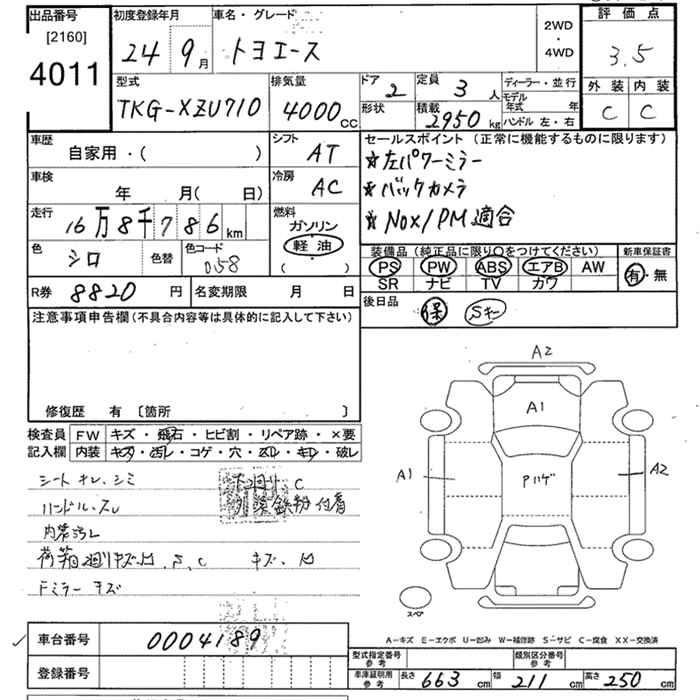 出品番号
[2160]
4011
初度登録年月
24 9月
車名・グレード
トヨエース
2WD
・
4WD
評価点
3.5
外装 内装
C C
型式
TKG-XZU710
排気量
4000cc
ドア 2
定員 3人
ディーラー・並行
形状
積載 2950kg
モデル年式 年
ハンドル 左・右
車歴
自家用・( )
シフト
AT
車検
年 月( 日)
冷房
AC
走行
16万8千786km
燃料
ガソリン
軽油
( )
色
シロ
色替
色コード
058
セールスポイント (正常に機能するものに限ります)
★左パワーミラー
★バックカメラ
★NOX/PM適合
装備品 (純正品に限り〇をつけてください)
PS PW ABS エアB AW
SR ナビ TV カワ
新車保証書
有・無
R券 8820円
名変期限 月 日
後日品
保 Sキー
注意事項申告欄(不具合内容等は具体的に記入して下さい)
修復歴 有 [箇所 ]
検査員 FW キズ・飛石・ヒビ割・リペア跡・×要
記入欄 内装 キズ・汚レ・コゲ・穴・スレ・キレ・破レ
シートキレ、シミ
ハンドル、スレ
内装汚レ
荷箱廻りキズ、凹、S、C キズ、凹
Fミラーキズ
下廻り、C
鉄粉付着
A2
A1
A1
Pハゲ
A2
スペア
車台番号 0004189
登録番号
A−キズ E−エクボ U−凹み W−補修跡 S−サビ C−腐食 XX−交換済
型式指定番号
参考
類別区分番号
参考
車庫証明用
参考
長さ 663cm 幅 211cm 高さ 250cm